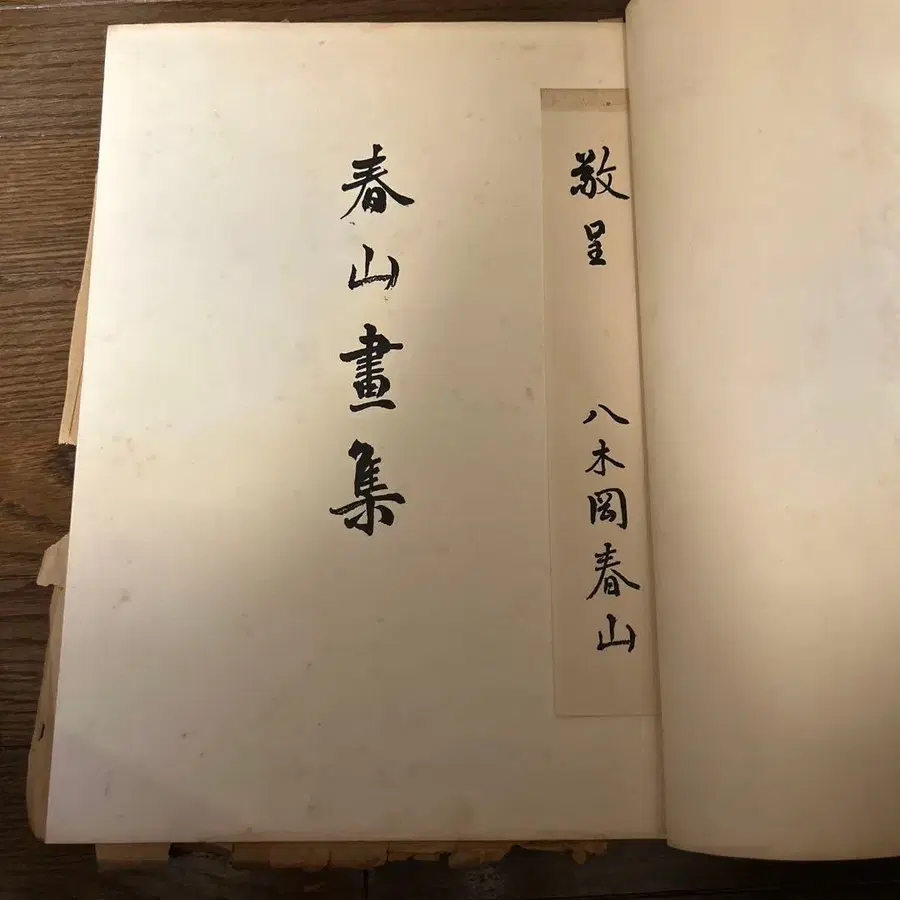 敬呈 八木岡春山
春山畫集